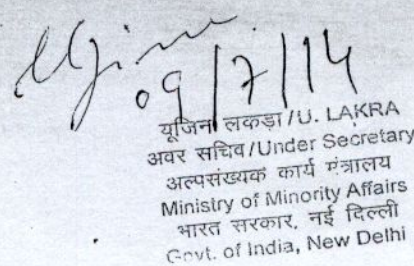 09/7/14
यूजिन लकड़ा/U. LAKRA
अवर सचिव/Under Secretary
अल्पसंख्यक कार्य मंत्रालय
Ministry of Minority Affairs
भारत सरकार, नई दिल्ली
Govt. of India, New Delhi